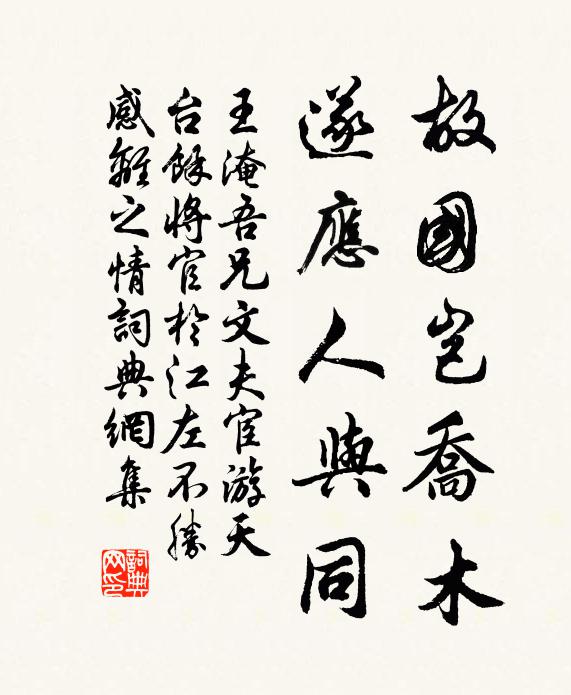 故國岂喬木
遂應人與同
王淹吾兄文夫宦游天
台餘將官於江左不勝
感離之情詞典網集
詞典网印